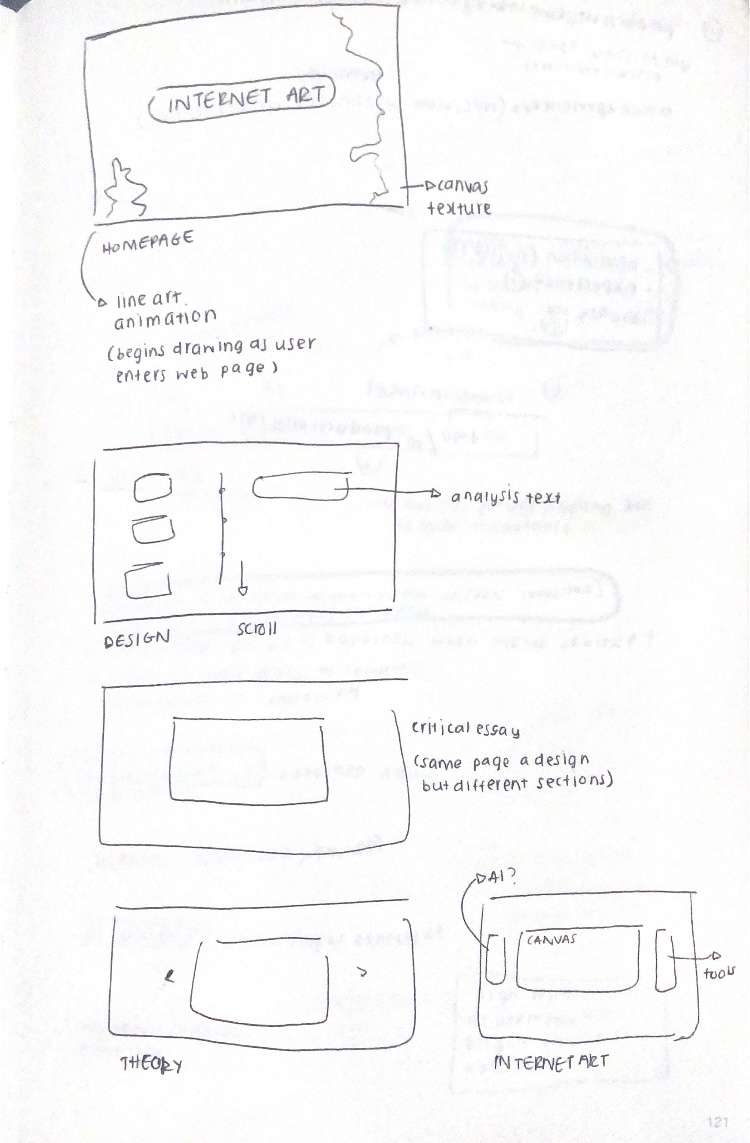 INTERNET ART
canvas
texture
HOMEPAGE
line art
animation
(begins drawing as user
enters web page)
analysis text
DESIGN
scroll
critical essay
(same page a design
but different sections)
AI?
CANVAS
tools
THEORY
INTERNET ART
121